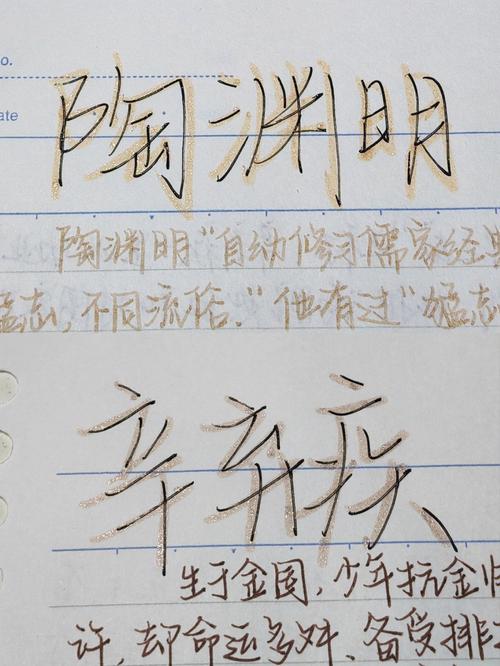 o.
ate
陶渊明
陶渊明"自幼修习儒家经
志,不同流俗."他有过"猛志
辛弃疾
生于金国,少年抗金归
许,却命运多舛、备受排